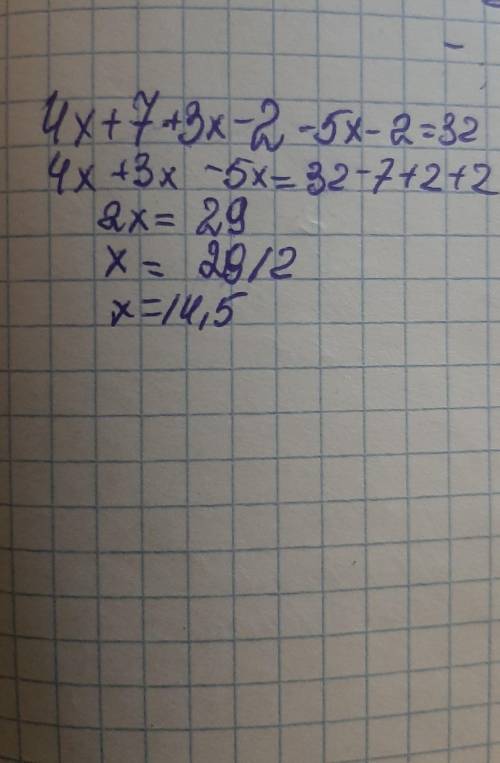 4x+7+3x-2-5x-2=32
4x+3x-5x=32-7+2+2
2x=29
x=29/2
x=14,5